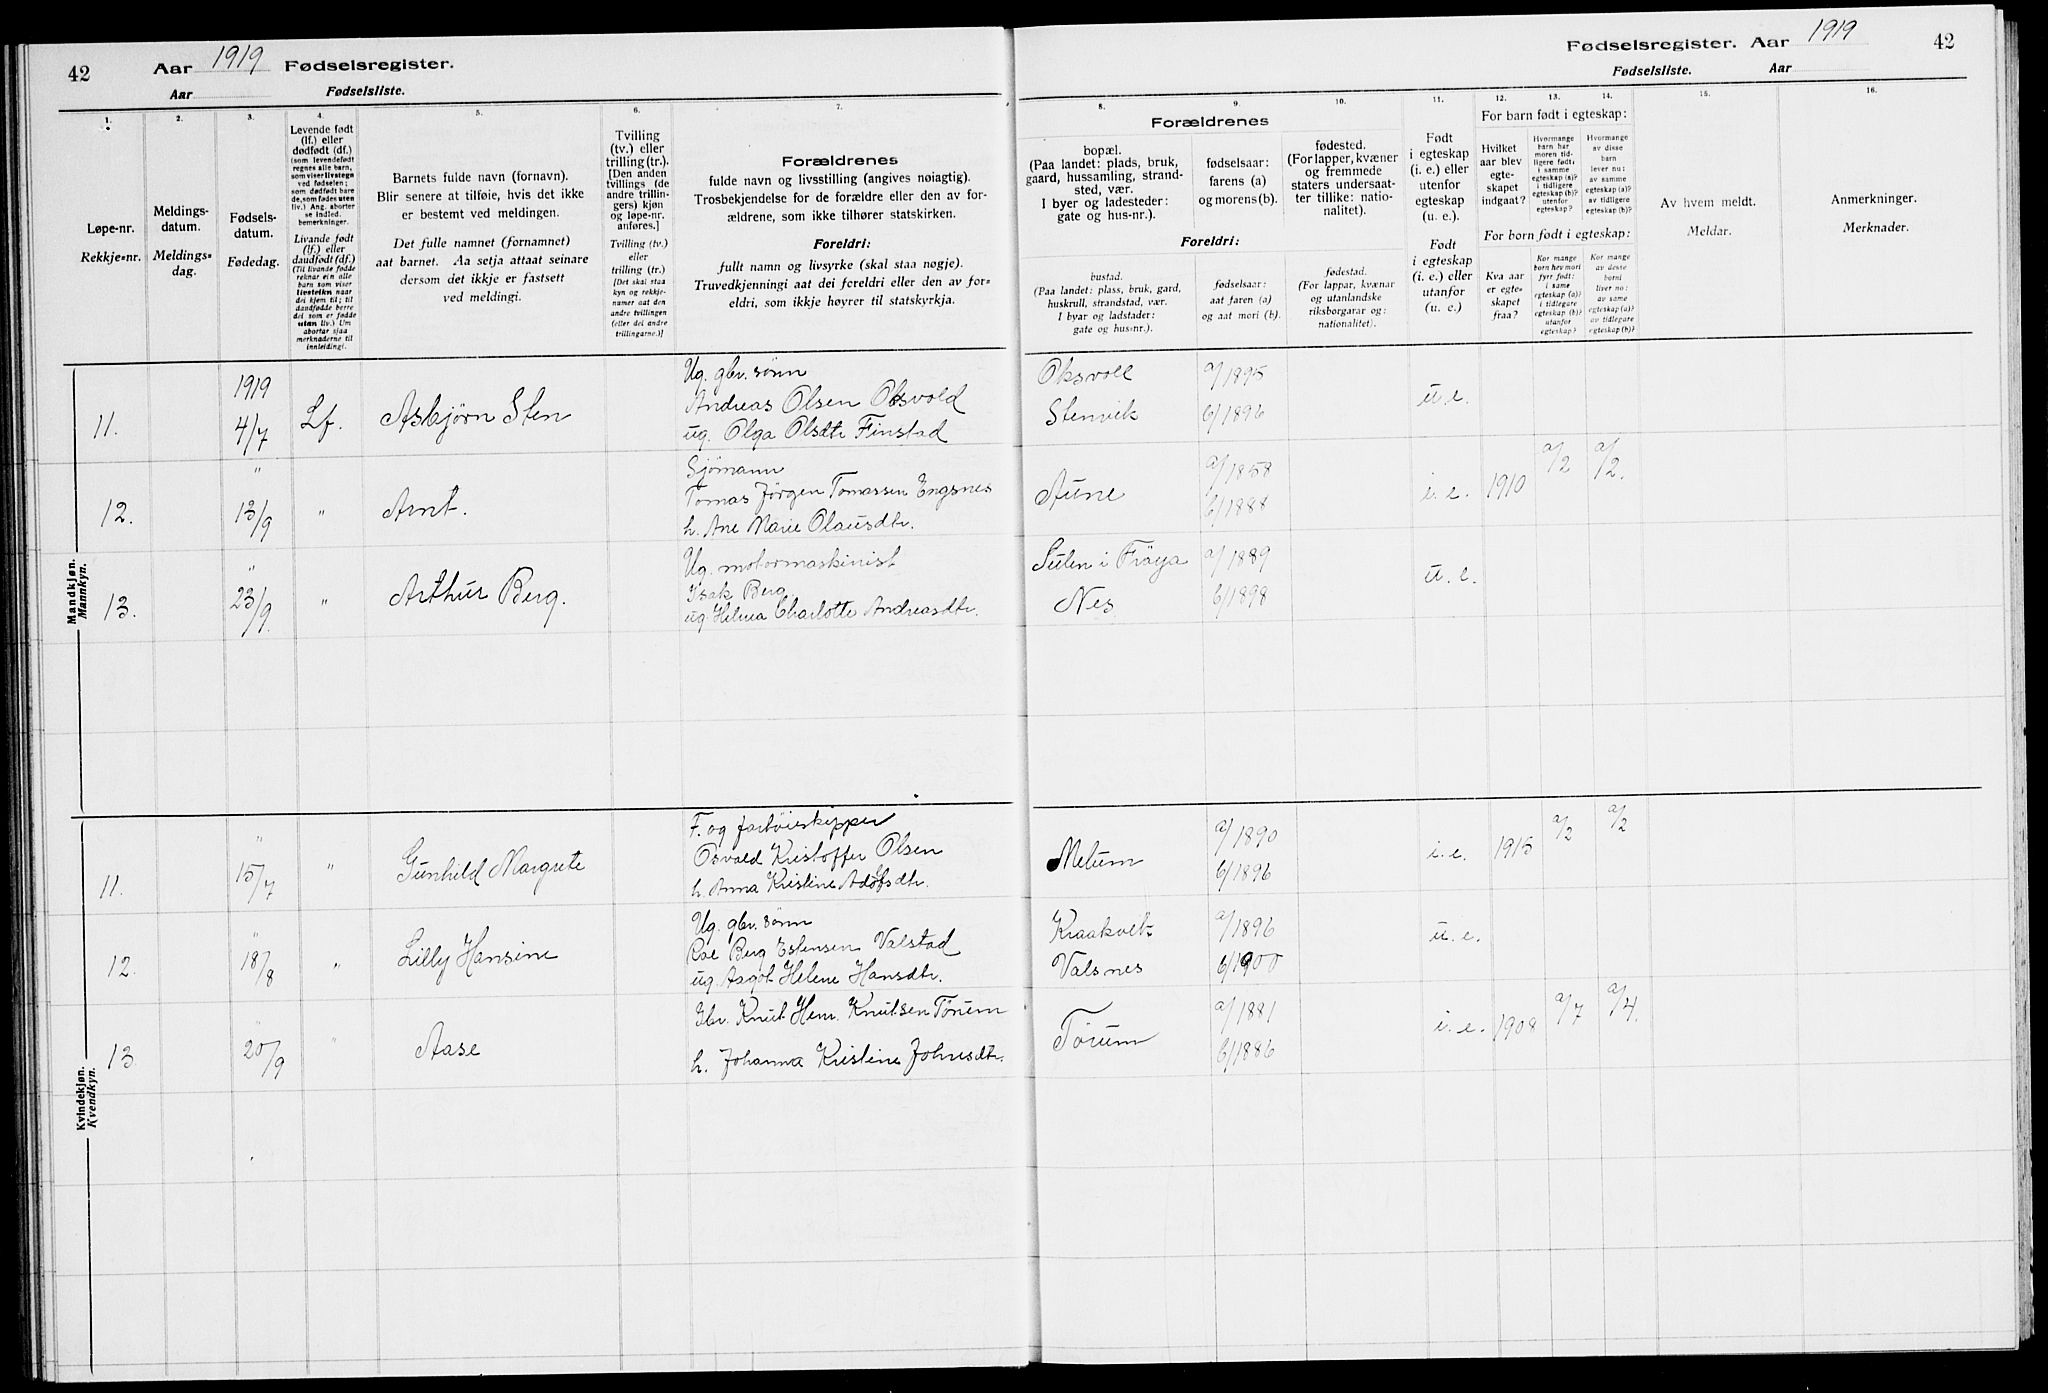 42 Aar 1919 Fødselsregister.
Aar Fødselsliste.
Fødselsregister. Aar 1919 42
Fødselsliste. Aar
1. 2. 3. 4. 5. 6. 7.
Løpe-nr.
Rekkje=nr.
Meldings-
datum.
Meldings=
dag.
Fødsels-
datum.
Fødedag.
Levende født
(lf.) eller
dødfødt (df.)
(som levendefødt
regnes alle barn,
som viser livstegn
ved fødselen;
som dødfødt bare
de, som fødes uten
liv.) Ang. aborter
se indled.
bemerkninger.
Livande født
(lf.) eller
daudfødt (df.)
(Til livande fødde
reknar ein alle
barn som viser
livsteikn naar
dei kjem til; til
daudfødde berre
dei som er fødde
utan liv.) Um
abortar sjaa
merknaderne til
innleidingi.
Barnets fulde navn (fornavn).
Blir senere at tilføie, hvis det ikke
er bestemt ved meldingen.
Det fulle namnet (fornamnet)
aat barnet. Aa setja attaat seinare
dersom det ikkje er fastsett
ved meldingi.
Tvilling
(tv.) eller
trilling (tr.).
[Den anden
tvillings (de
andre trillin-
gers) kjøn
og løpe-nr.
anføres.]
Tvilling (tv.)
eller
trilling (tr.)
[Det skal staa
kyn og rekkje-
numer aat den
andre tvillingen
(eller dei andre
trillingarne.)]
Forældrenes
fulde navn og livsstilling (angives nøiagtig).
Trosbekjendelse for de forældre eller den av for-
ældrene, som ikke tilhører statskirken.
Foreldri:
fullt namn og livsyrke (skal staa nøgje).
Truvedkjenningi aat dei foreldri eller den av for=
eldri, som ikkje høyrer til statskyrkja.
8. 9. 10. 11. 12. 13. 14. 15. 16.
Forældrenes
bopæl.
(Paa landet: plads, bruk,
gaard, hussamling, strand-
sted, vær.
I byer og ladesteder:
gate og hus-nr.).
fødselsaar:
farens (a)
og morens (b).
fødested.
(For lapper, kvæner
og fremmede
staters undersaat-
ter tillike: natio-
nalitet).
Foreldri:
bustad.
(Paa landet: plass, bruk, gard,
huskrull, strandstad, vær.
I byar og ladstader:
gate og hus=nr.).
fødselsaar:
aat faren (a)
og aat mori (b).
fødestad.
(For lappar, kvænar
og utanlandske
riksborgarar og:
nationalitet).
Født
i egteskap
(i. e.) eller
utenfor
egteskap
(u. e.).
Født
i egteskap
(i. e.) eller
utanfor
(u. e.)
For barn født i egteskap:
Hvilket
aar blev
egte-
skapet
indgaat?
Hvormange
barn har
moren tid-
ligere født:
i samme
egteskap (a)?
i tidligere
egteskap (b)?
utenfor
egteskap?
Hvormange
av disse
barn
lever nu:
av samme
egteskap (a)?
av tidligere
egteskap (b)?
For born født i egteskap:
Kva aar
er egte=
skapet
fraa?
Kor mange
born hev mori
fyrr født:
i same
egteskap (a)?
i tidlegare
egteskap (b)?
utanfor
egteskap?
Kor mange
av desse
borni
liver no:
av same
egteskap (a)?
av tidlegare
egteskap (b)?
Av hvem meldt.
Meldar.
Anmerkninger.
Merknader.
Mandkjøn.
Mannkyn.
1919
11. 4/7 Lf. Asbjørn Sten
Ug. gbr. sønn
Andreas Olsen Oksvold
ug. Olga Olsdtr Finstad
Oksvoll a/1895
Stenvik b/1896
u. e.
12. " 13/9 " Arnt.
Sjømann
Tomas Jørgen Tomassen Engsnes
h. Ane Marie Olausdtr.
Aune a/1858
b/1888
i. e. 1910 a/2 a/2.
13. " 23/9 " Arthur Berg.
Ug. motormaskinist
Isak Berg
ug. Helma Charlotte Andreasdtr.
Sulen i Frøya a/1889
Nes b/1898
u. e.
Kvindekjøn.
Kvendkyn.
11. " 15/7 " Gunhild Margrete
F. og fartøiskipper
Osvald Kristoffer Olsen
h. Anna Kristine Adolfsdtr.
Melum a/1890
b/1896
i. e. 1915 a/2 a/2
12. " 18/8 " Lilly Hansine
Ug. gbr. sønn
Roe Berg Estensen Valstad
ug. Asgot Helene Hansdtr.
Kraakvik a/1896
Valsnes b/1900
u. e.
13. " 20/9 " Aase
Gbr. Knut Henr. Knutsen Tørum
h. Johanna Kristine Johnsdtr.
Tørum a/1881
b/1886
i. e. 1908 a/7 a/4.